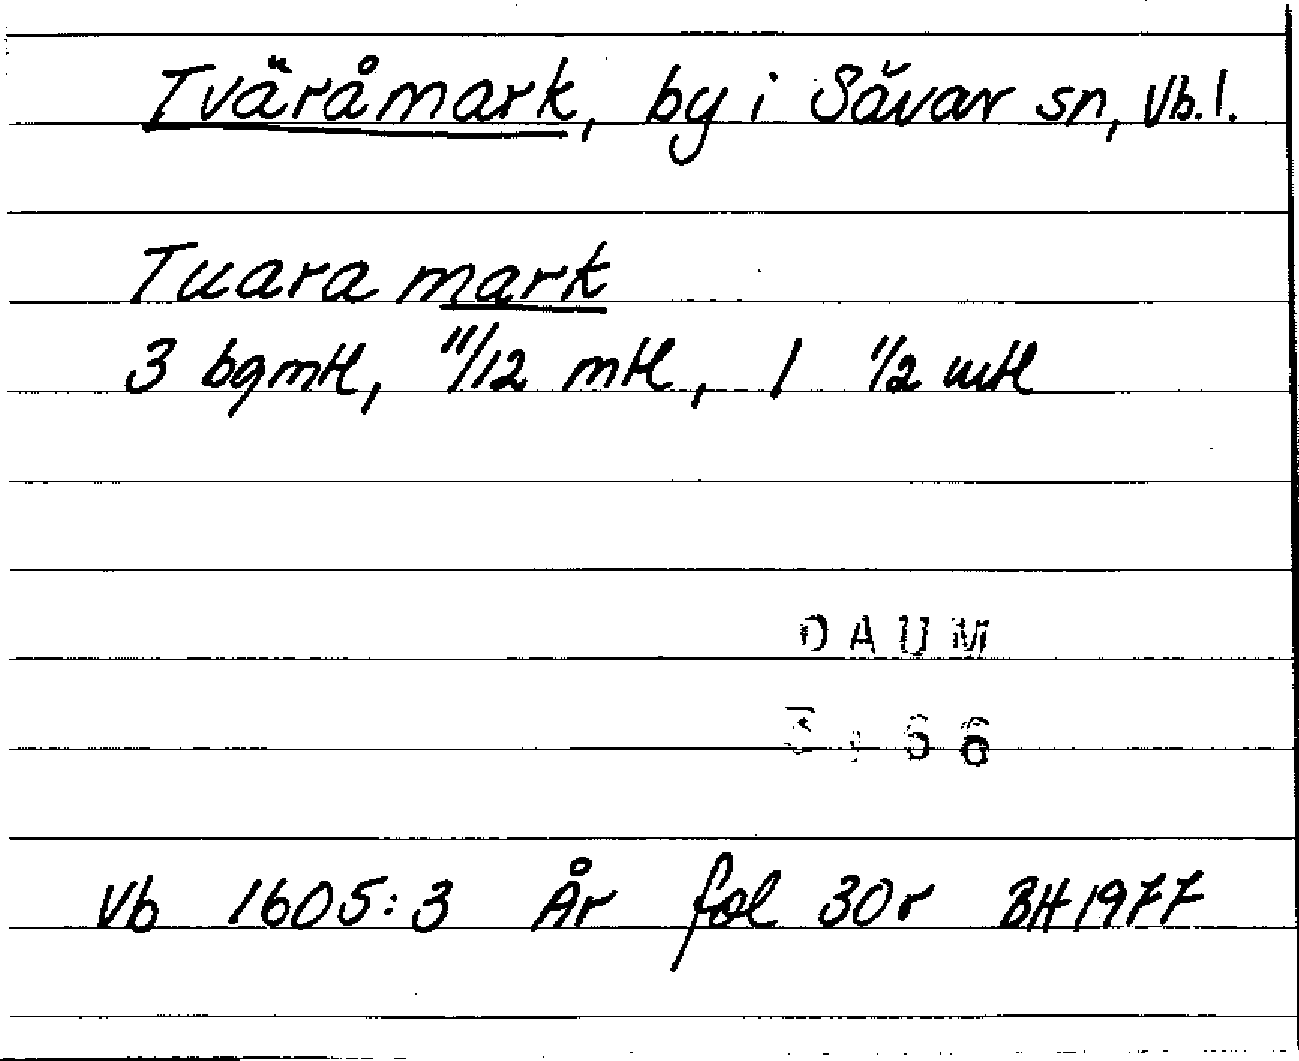 Tväråmark, by i Sävar sn, Vb. l.
Tuara mark
3 bgmtl, 11/12 mtl, 1 1/2 mtl
DAUM
Vb 1605:3 År fol 30r BH 1977